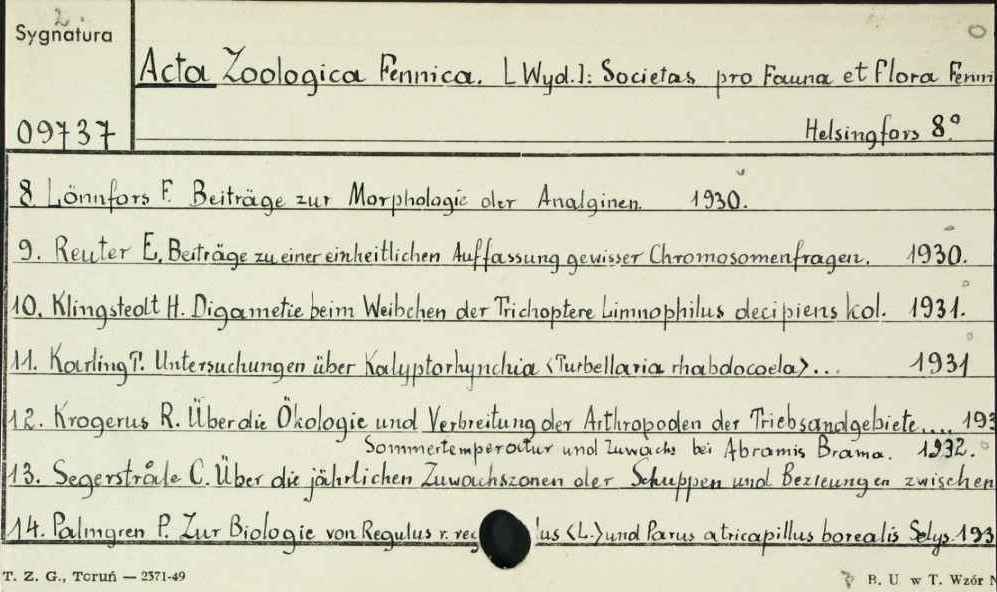 2
Sygnatura
Acta Zoologica Fennica. [Wyd.]: Societas pro Fauna et Flora Fenni
09737
Helsingfors 8.°
8. Lönnfors F. Beiträge zur Morphologie der Analginen. 1930.
9. Reuter E. Beiträge zu einer einheitlichen Auffassung gewisser Chromosomenfragen. 1930.
10. Klingstedt H. Digametie beim Weibchen der Trichoptere Limnophilus decipiens kol. 1931.
11. Karling T. Untersuchungen über Kalyptorhynchia <Turbellaria rhabdocoela>... 1931
12. Krogerus R. Über die Ökologie und Verbreitung der Arthropoden der Triebsandgebiete.... 193
Sommertemperatur und Zuwachs bei Abramis Brama. 1932.
13. Segerstråle C. Über die jährlichen Zuwachszonen der Schuppen und Bezieungen zwischen
14. Palmgren P. Zur Biologie von Regulus r. reg us <L.> und Parus atricapillus borealis Selys 193
T. Z. G., Toruń — 2371-49
B. U w T. Wzór N